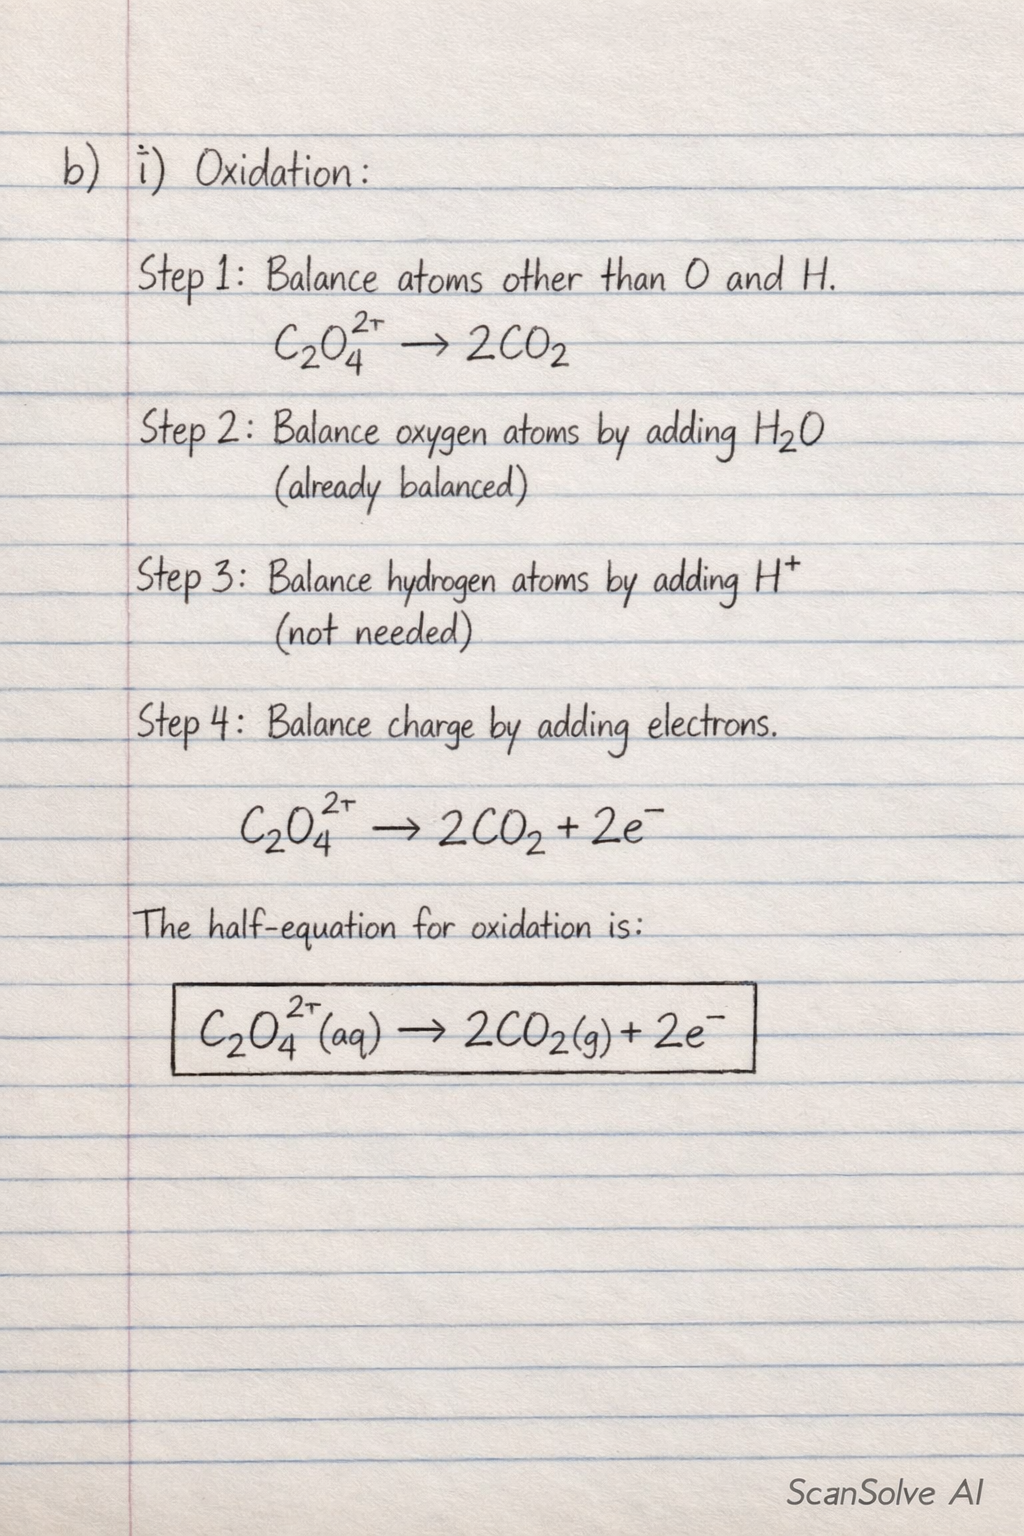 b) i) Oxidation:
Step 1: Balance atoms other than O and H.
C₂O₄²ᵀ → 2CO₂
Step 2: Balance oxygen atoms by adding H₂O
(already balanced)
Step 3: Balance hydrogen atoms by adding H⁺
(not needed)
Step 4: Balance charge by adding electrons.
C₂O₄²ᵀ → 2CO₂ + 2e⁻
The half-equation for oxidation is:
C₂O₄²ᵀ(aq) → 2CO₂(g) + 2e⁻
ScanSolve AI